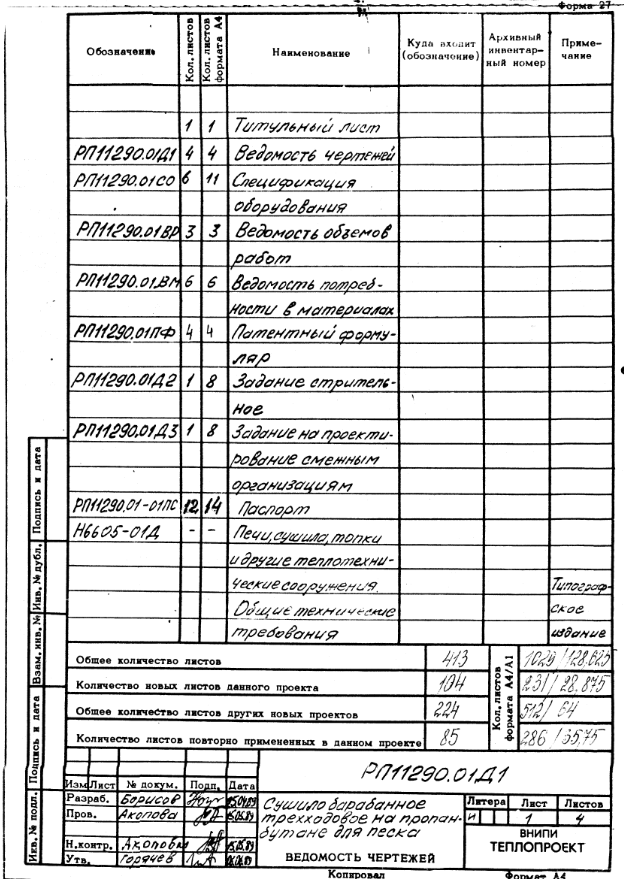 Форма 27
Обозначение
Кол. листов
Кол. листов формата А4
Наименование
Куда входит (обозначение)
Архивный инвентарный номер
Примечание
1 1 Титульный лист
РП11290.01Д1 4 4 Ведомость чертежей
РП11290.01СО 6 11 Спецификация
оборудования
РП11290.01ВР 3 3 Ведомость объемов
работ
РП11290.01.ВМ 6 6 Ведомость потреб-
ности в материалах
РП11290.01ПФ 4 4 Патентный форму-
ляр
РП11290.01Д2 1 8 Задание стритель-
ное
РП11290.01Д3 1 8 Задание на проекти-
рование смежным
организациям
РП11290.01-01ПС 12 14 Паспорт
Н6605-01Д - - Печи, сушила, топки
и другие теплотехни-
ческие сооружения. Типограф-
Общие технические ское
требования издание
Общее количество листов 413
Количество новых листов данного проекта 104
Общее количество листов других новых проектов 224
Количество листов повторно примененных в данном проекте 85
Кол. листов формата А4/А1
1029/128,625
231/28.875
512/64
286/35,75
РП11290.01Д1
Изм Лист № докум. Подп. Дата
Разраб. Борисов
Пров. Акопова
Н.контр. Акопова
Утв. Горячев
Сушило барабанное
трехходовое на пропан-
бутане для песка
ВЕДОМОСТЬ ЧЕРТЕЖЕЙ
Литера Лист Листов
И 1 4
ВНИПИ
ТЕПЛОПРОЕКТ
Инв. № подл. Подпись и дата Взам. инв. № Инв. № дубл. Подпись и дата
Копировал Формат А4